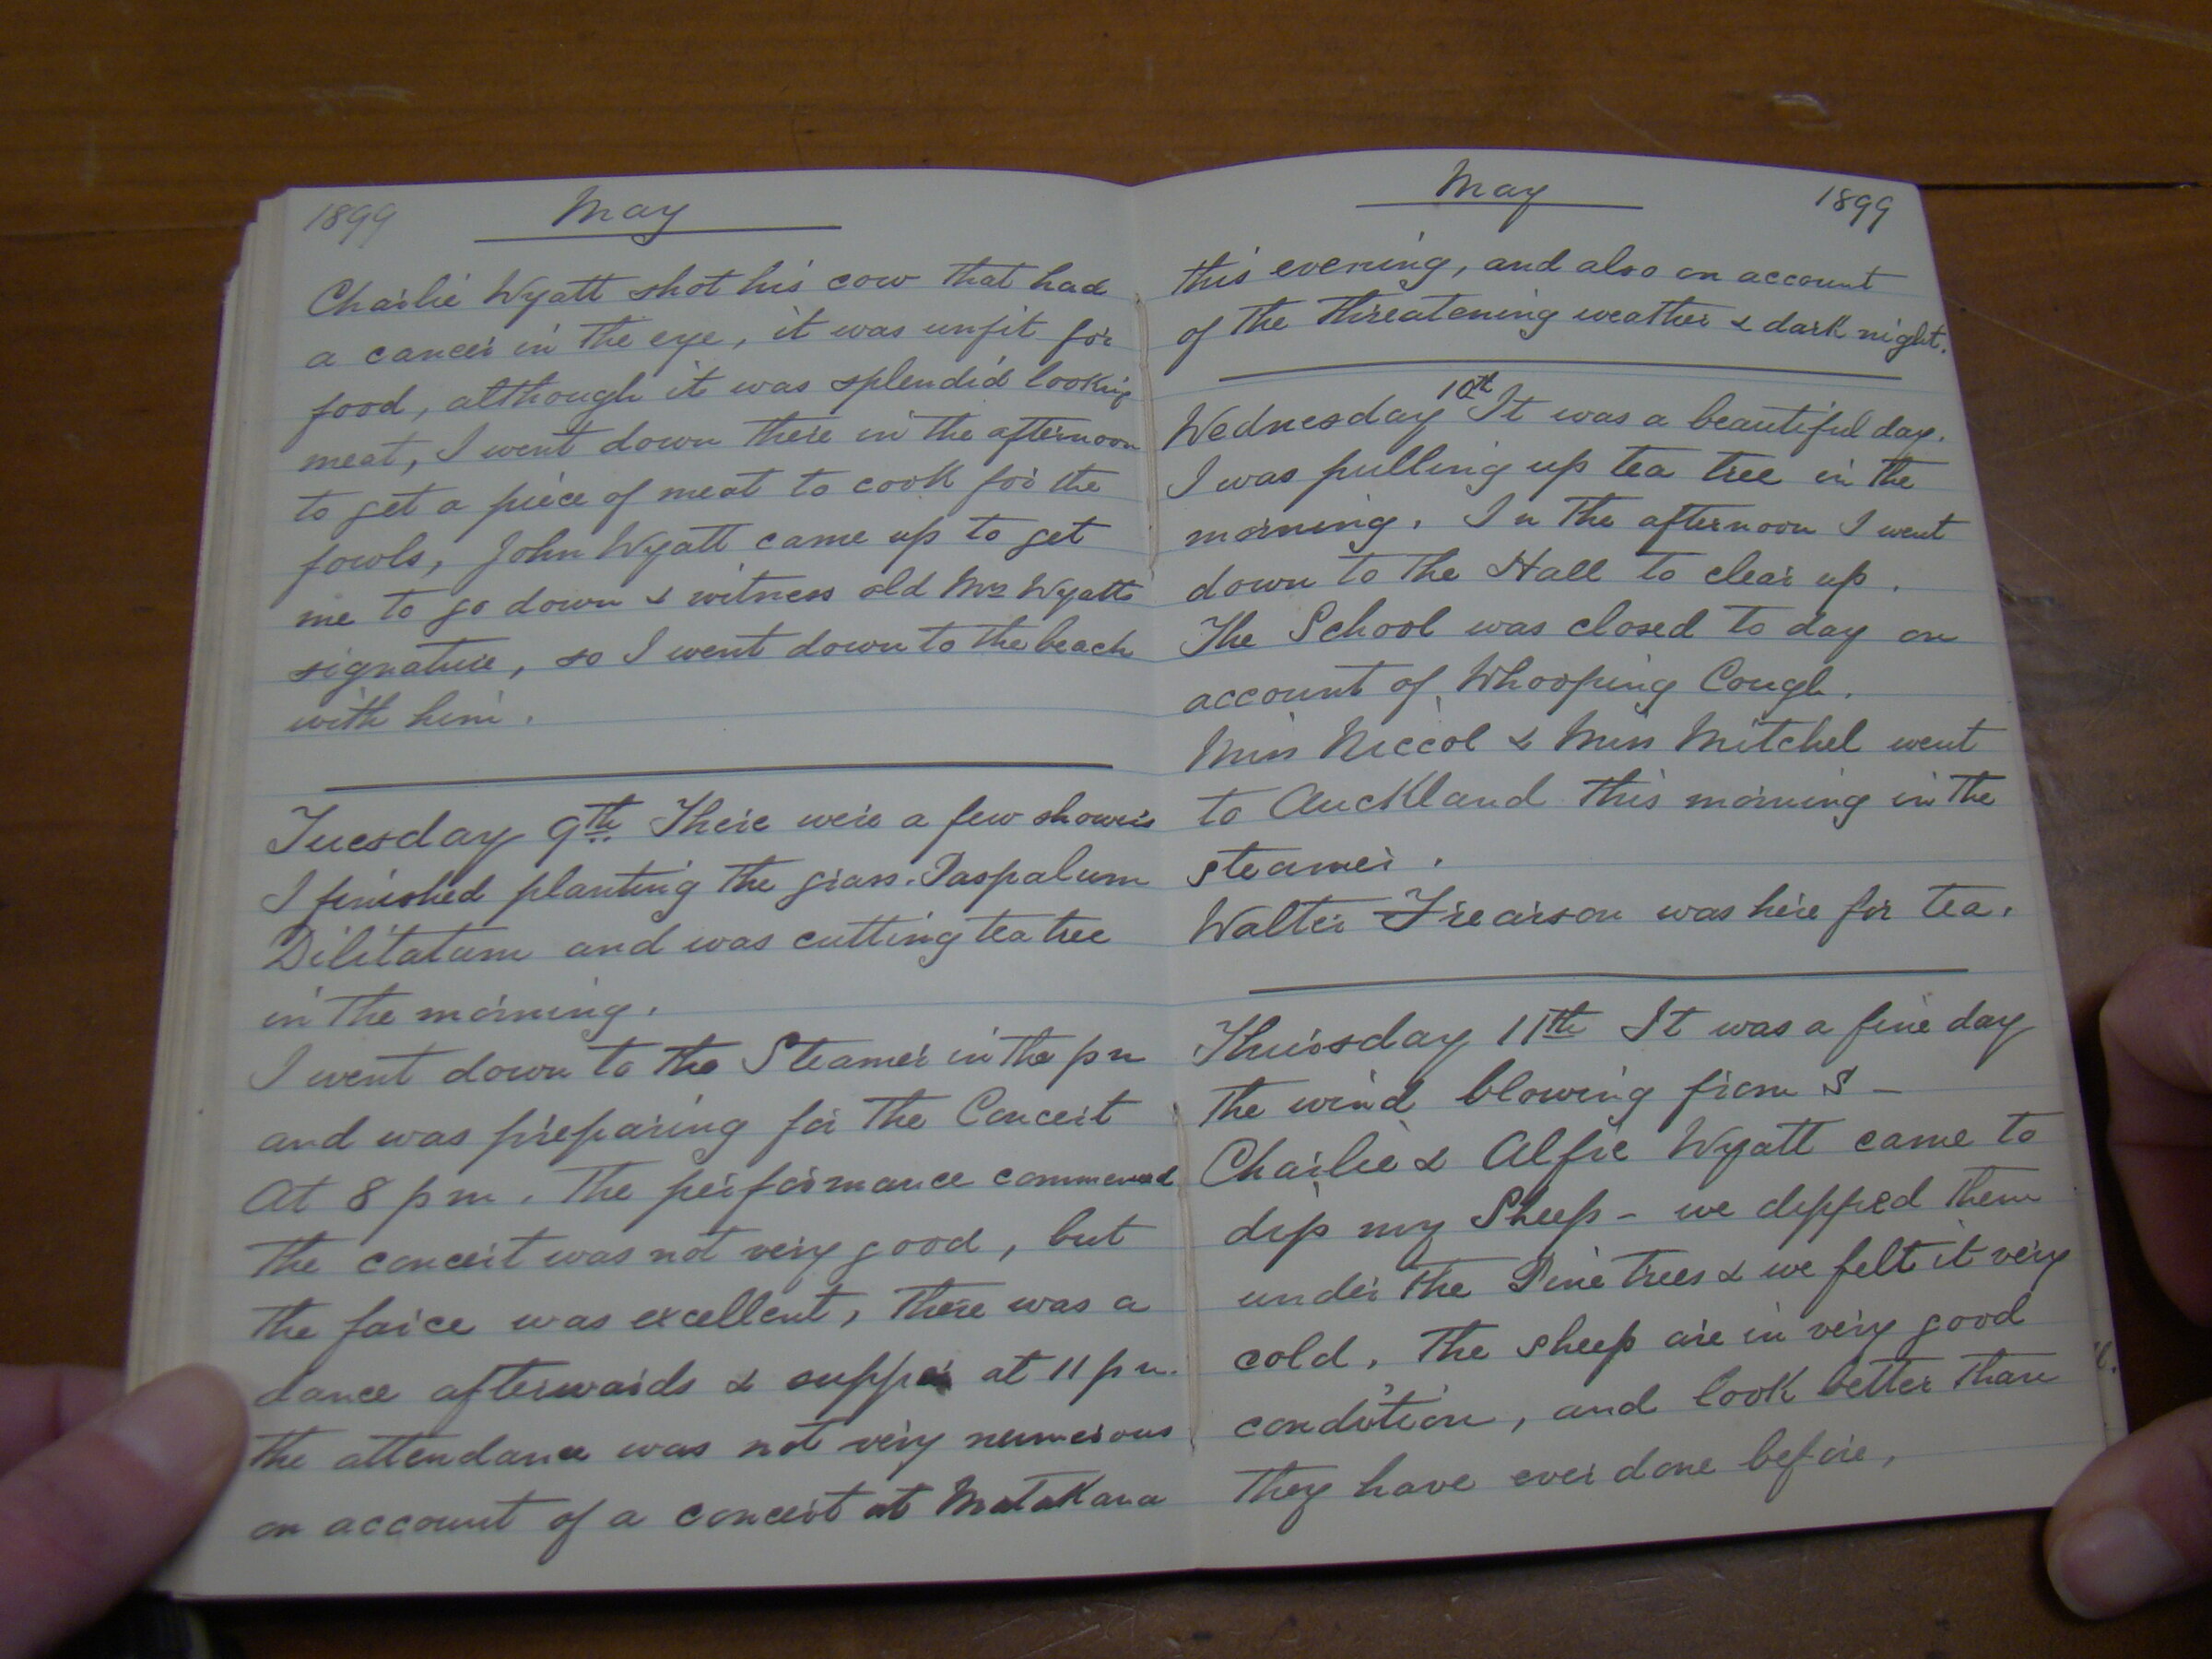 1899 May
Charlie Wyatt shot his cow that had
a cancer in the eye, it was unfit for
food, although it was splendid looking
meat, I went down there in the afternoon
to get a piece of meat to cook for the
fowls, John Wyatt came up to get
me to go down & witness old Mrs Wyatts
signature, so I went down to the beach
with him.
Tuesday 9th There were a few showers
I finished planting the grass. Paspalum
Dilitatum and was cutting tea tree
in the morning.
I went down to the Steamer in the pm
and was preparing for the Concert
At 8 pm. The performance commenced
the concert was not very good, but
the farce was excellent, there was a
dance afterwards & supper at 11 pm.
the attendance was not very numerous
on account of a concert at Matakana
May 1899
this evening, and also on account
of the threatening weather & dark night.
Wednesday 10th It was a beautiful day.
I was pulling up tea tree in the
morning. In the afternoon I went
down to the Hall to clear up.
The School was closed to day on
account of Whooping Cough.
Miss Niccol & Miss Mitchel went
to Auckland this morning in the
steamer.
Walter Frearson was here for tea.
Thursday 11th It was a fine day
the wind blowing from S –
Charlie & Alfie Wyatt came to
dip my Sheep – we dipped them
under the Pine trees & we felt it very
cold. The sheep are in very good
condition, and look better than
they have ever done before,